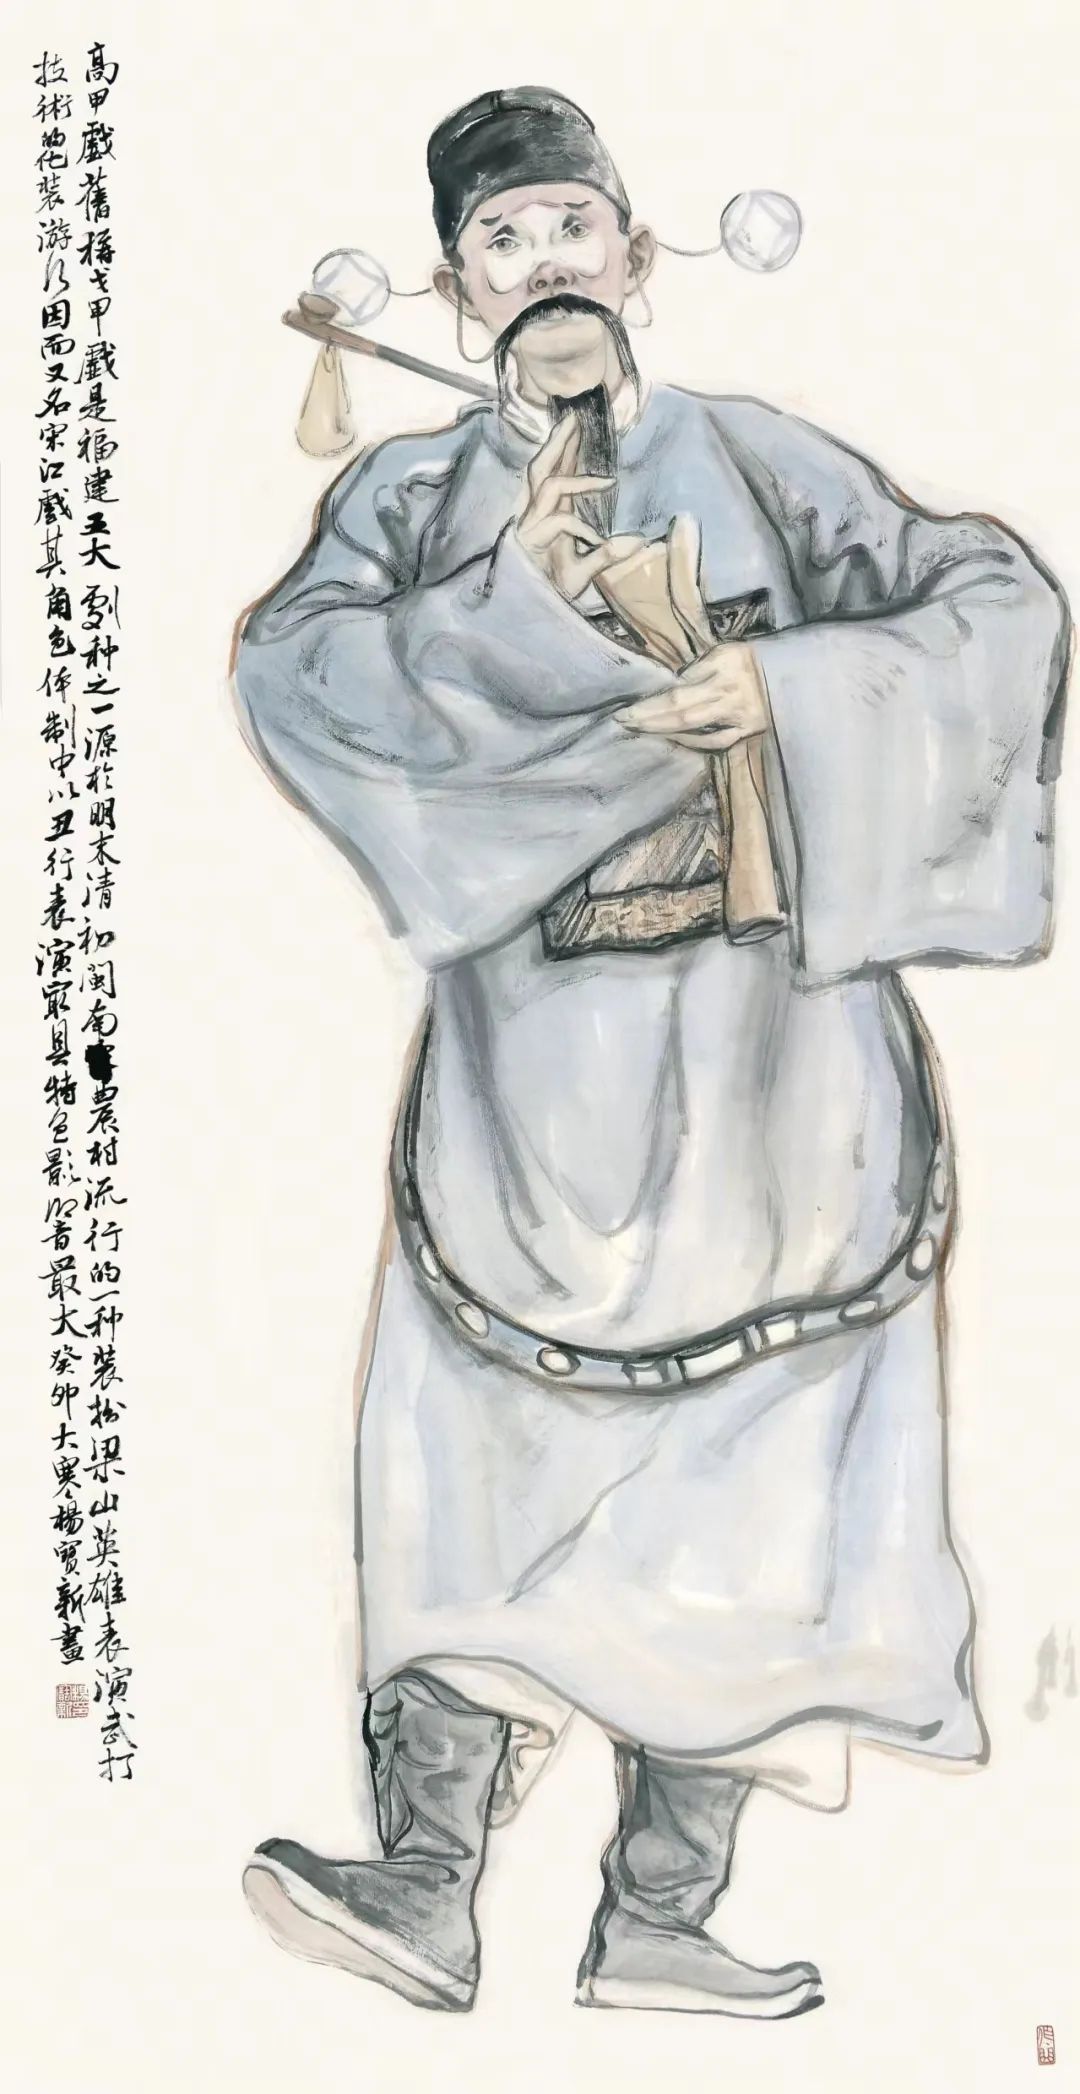 高甲戲舊稱戈甲戲是福建五大劇种之一源於明末清初閩南農村流行的一种裝扮梁山英雄表演武打
技術的化裝游行因而又名宋江戲其角色体制中以丑行表演最具特色影响最大癸卯大寒楊寶新畫